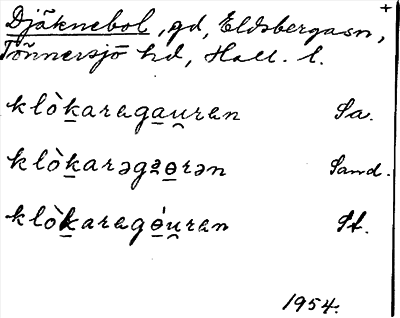 +
Djäknebol, gd, Eldsbergasn,
Tönnersjö hd, Hall. l.
klòkaragau̯ran Sa.
klòkarəgɜɵrən Sand.
klòkaragɵ́u̯ran St.
1954.